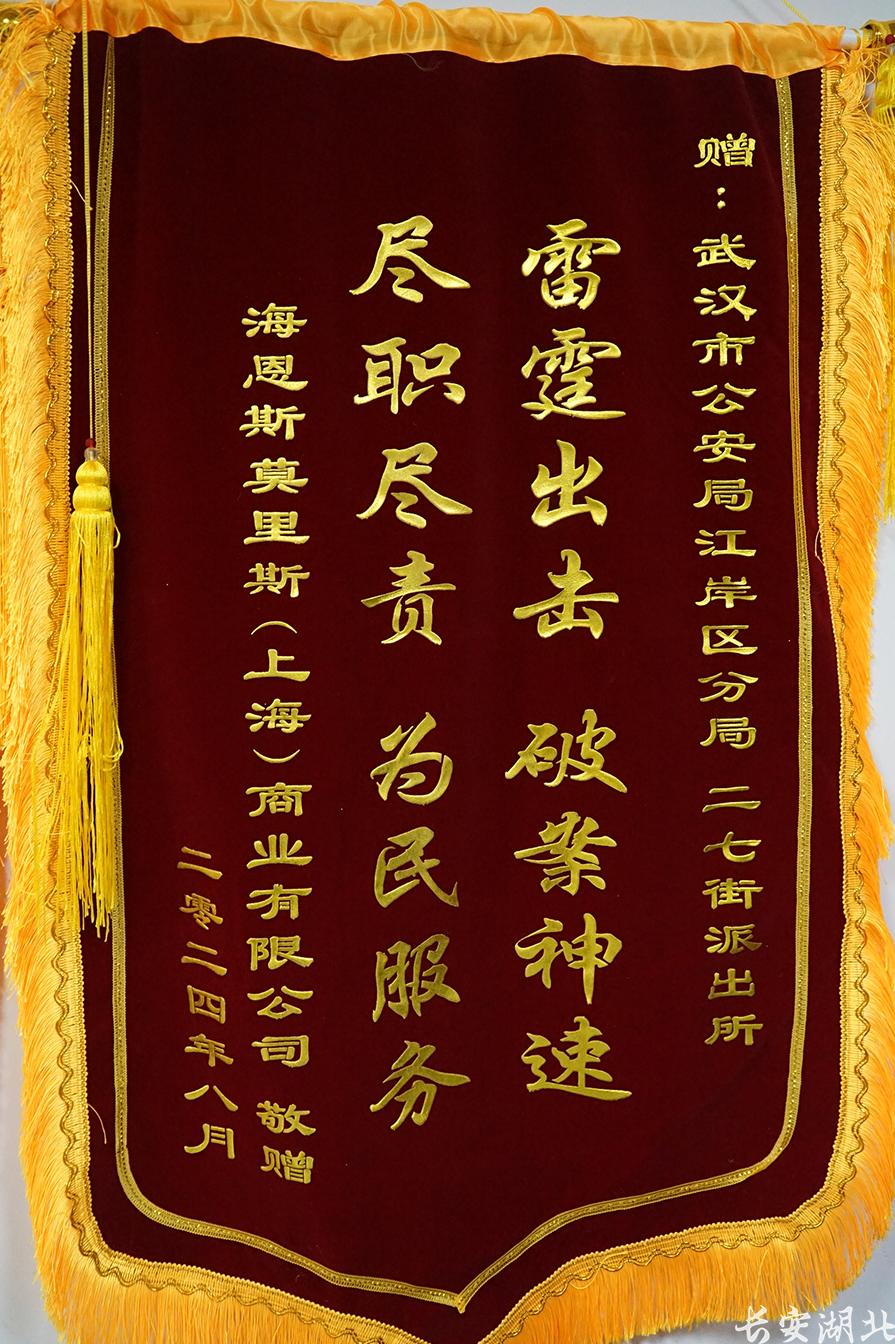 赠：武汉市公安局江岸区分局 二七街派出所
雷霆出击 破案神速
尽职尽责 为民服务
海恩斯莫里斯（上海）商业有限公司 敬赠
二零二四年八月
长安湖北